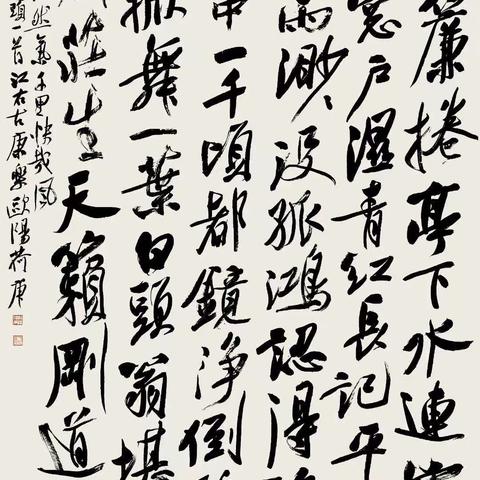 簾捲亭下水連
窓戶濕青紅長記平
雨渺々没孤鴻認得
中一千頃都鏡淨倒
掀舞一葉白頭翁堪
莊生天籟剛道
然氣千里快哉風
頭一首江右古康樂歐陽荷庚